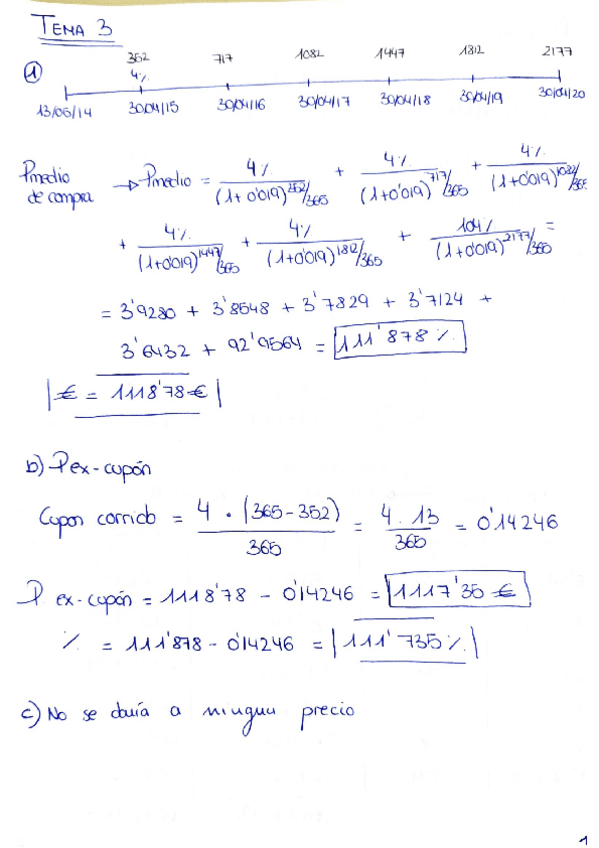 TEMA 3
352 717 1082 1447 1812 2177
① 4%
13/05/14 30/04/15 30/04/16 30/04/17 30/04/18 30/04/19 30/04/20
Pmedio de compra → Pmedio = 4% / (1+0'019)^352/365 + 4% / (1+0'019)^717/365 + 4% / (1+0'019)^1082/365
+ 4% / (1+0'019)^1447/365 + 4% / (1+0'019)^1812/365 + 104% / (1+0'019)^2177/365 =
= 3'9280 + 3'8548 + 3'7829 + 3'7124 +
3'6432 + 92'9564 = 111'878 %
€ = 1118'78 €
b) P ex-cupón
Cupon corrido = 4 · (365-352) / 365 = 4 · 13 / 365 = 0'14246
P ex-cupón = 1118'78 - 0'14246 = 1117'35 €
% = 111'878 - 0'14246 = 111'735 %
c) No se daría a ningun precio
1